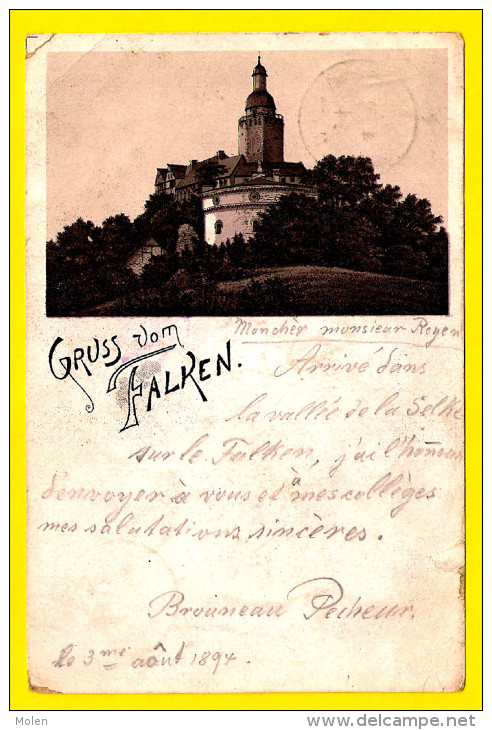 Gruss vom
Falken.
Moncher monsieur Regen
Arrivé dans
la vallée de la Selke
sur le Falken, j'ai l'honneur
d'envoyer à vous et à mes collèges
mes salutations sincères.
Brouneau Pecheur.
le 3me août 1894.
Molen
© www.delcampe.net